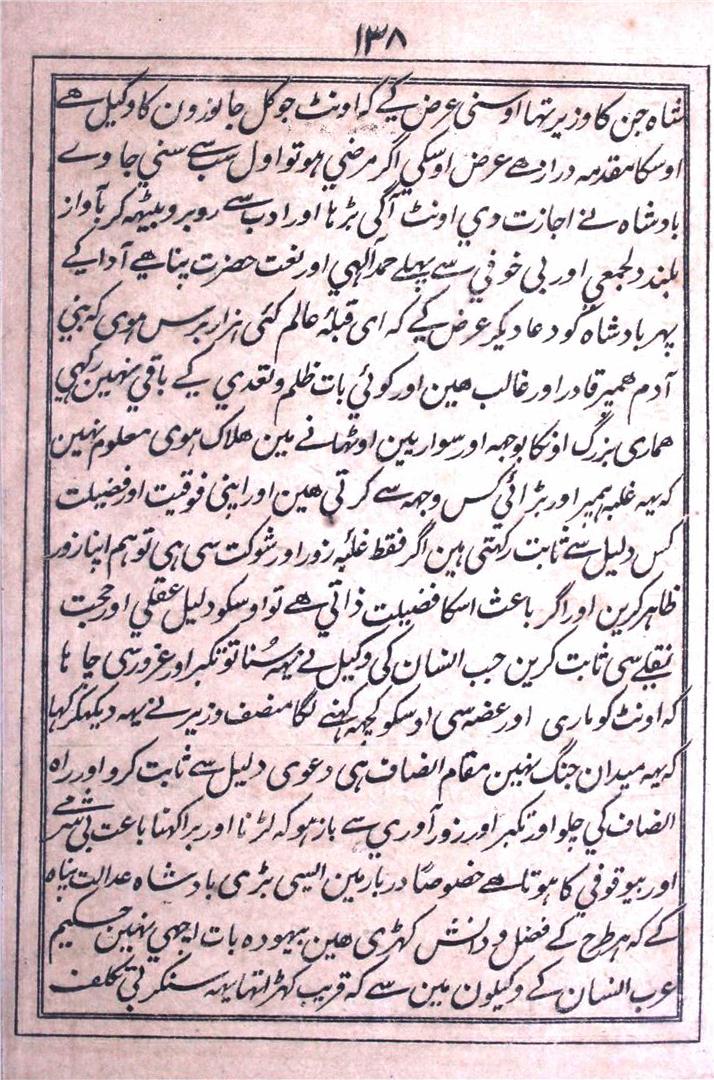 ١٣٨
شاہ جن کا وزیر تھا اوسنی عرض کے کہ اونٹ جو کل جانورون کا وکیل ھے
اوسکا مقدمہ دراز ھے عرض اوسکی اگر مرضی ہو تو اول سب سے سنی جاوے
بادشاہ نے اجازت دی اونٹ آگی بڑہا اور ادب سے روبرو بیٹھہ کر بآواز
بلند دلجمعی اور بی خوفی سے پہلے حمد آلہی اور نعت حضرت پناھے آدا کے
پہر بادشاہ کو دعا دیکر عرض کے کہ ای قبلۂ عالم کئی ہزار برس ہوی کہ بنی
آدم ھمپر قادر اور غالب ھین اور کوئی بات ظلم و تعدی کے باقی نہین رکھی
ھماری بزرگ اونکا بوجہہ اور سوارییں اوٹھانے مین ھلاک ہوی معلوم نہین
کہ یہہ غلبہ ہمپر اور بڑائی کس وجہہ سے کرتی ھین اور اپنی فوقیت اور فضیلت
کس دلیل سے ثابت رکہتی ہین اگر فقط غلبۂ زور اور شوکت سی ہی تو ہم اپنا زور
ظاہر کرین اور اگر باعث اسکا فضیلت ذاتی ھے تو اوسکو دلیل عقلی اور حجت
نقلے سی ثابت کرین جب انسان کی وکیل نے یہہ سُنا تو تکبر اور غرور سی چاہا
کہ اونٹ کو ماری اور غصہ سی اوسکو کچہہ کہنے لگا منصف وزیر نے یہہ دیکہکر کہا
کہ یہہ میدان جنگ نہین مقام انصاف ہی دعوی دلیل سے ثابت کرو اور راہ
انصاف کی چلو اور تکبر اور زور آوری سے باز ہو کہ لڑنا اور برا کہنا باعث بی شرمے
اور بیوقوفی کا ہوتا ھے خصوصاً دربار مین ایسی بڑی بادشاہ عدالت پناہ
کے کہ ہر طرح کے فضل و دانش کہڑی ھین بیہودہ بات اچھی نہین حکیم
عرب انسان کے وکیلون مین سے کہ قریب کہڑا تھا یہہ سنکر بی تکلف